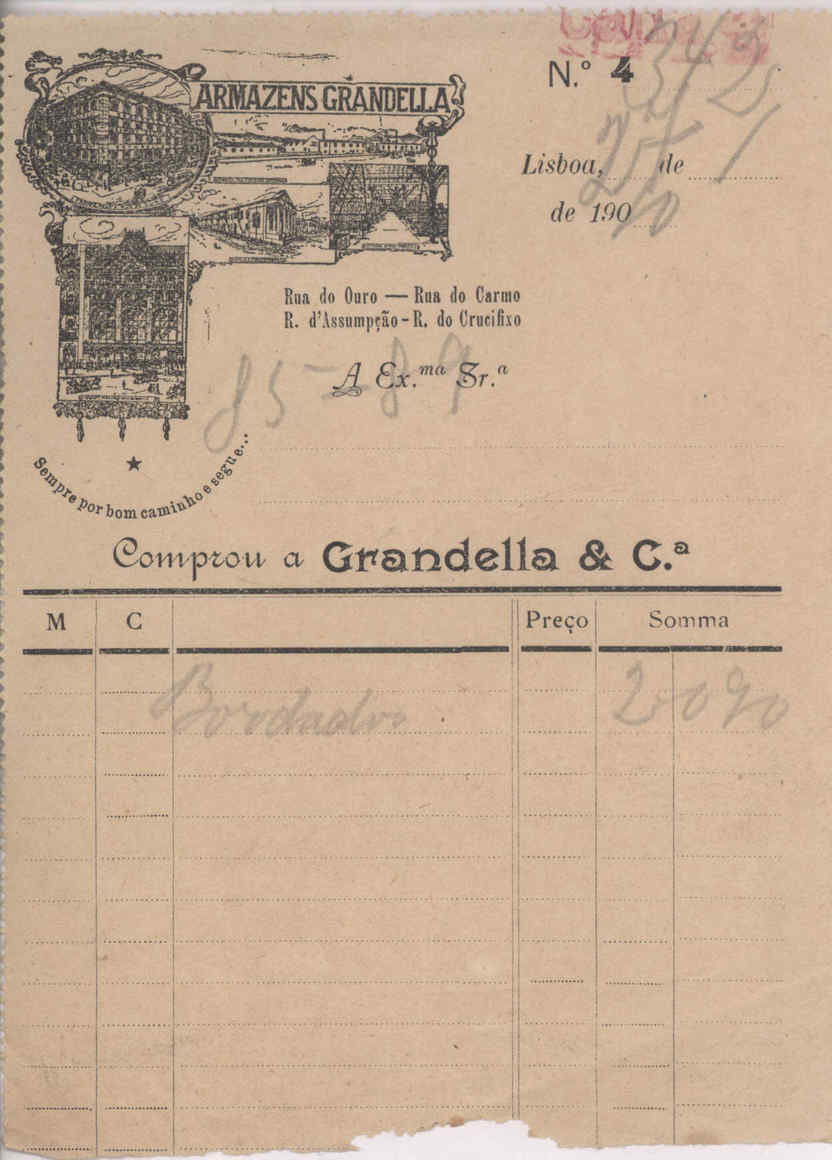 ARMAZENS GRANDELLA
N.º 4
Lisboa, de
de 190
Rua do Ouro — Rua do Carmo
R. d'Assumpção - R. do Crucifixo
85-89
A Ex.ma Sr.a
Sempre por bom caminho e segue...
Comprou a Grandella & C.ª
M C Preço Somma
Bordados 2090